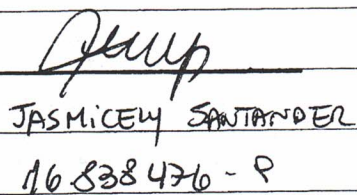 JASMiCELY SANTANDER
16.838.476-8